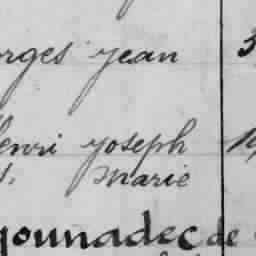 orges Jean 3
Henri Joseph
Marie
younadec de